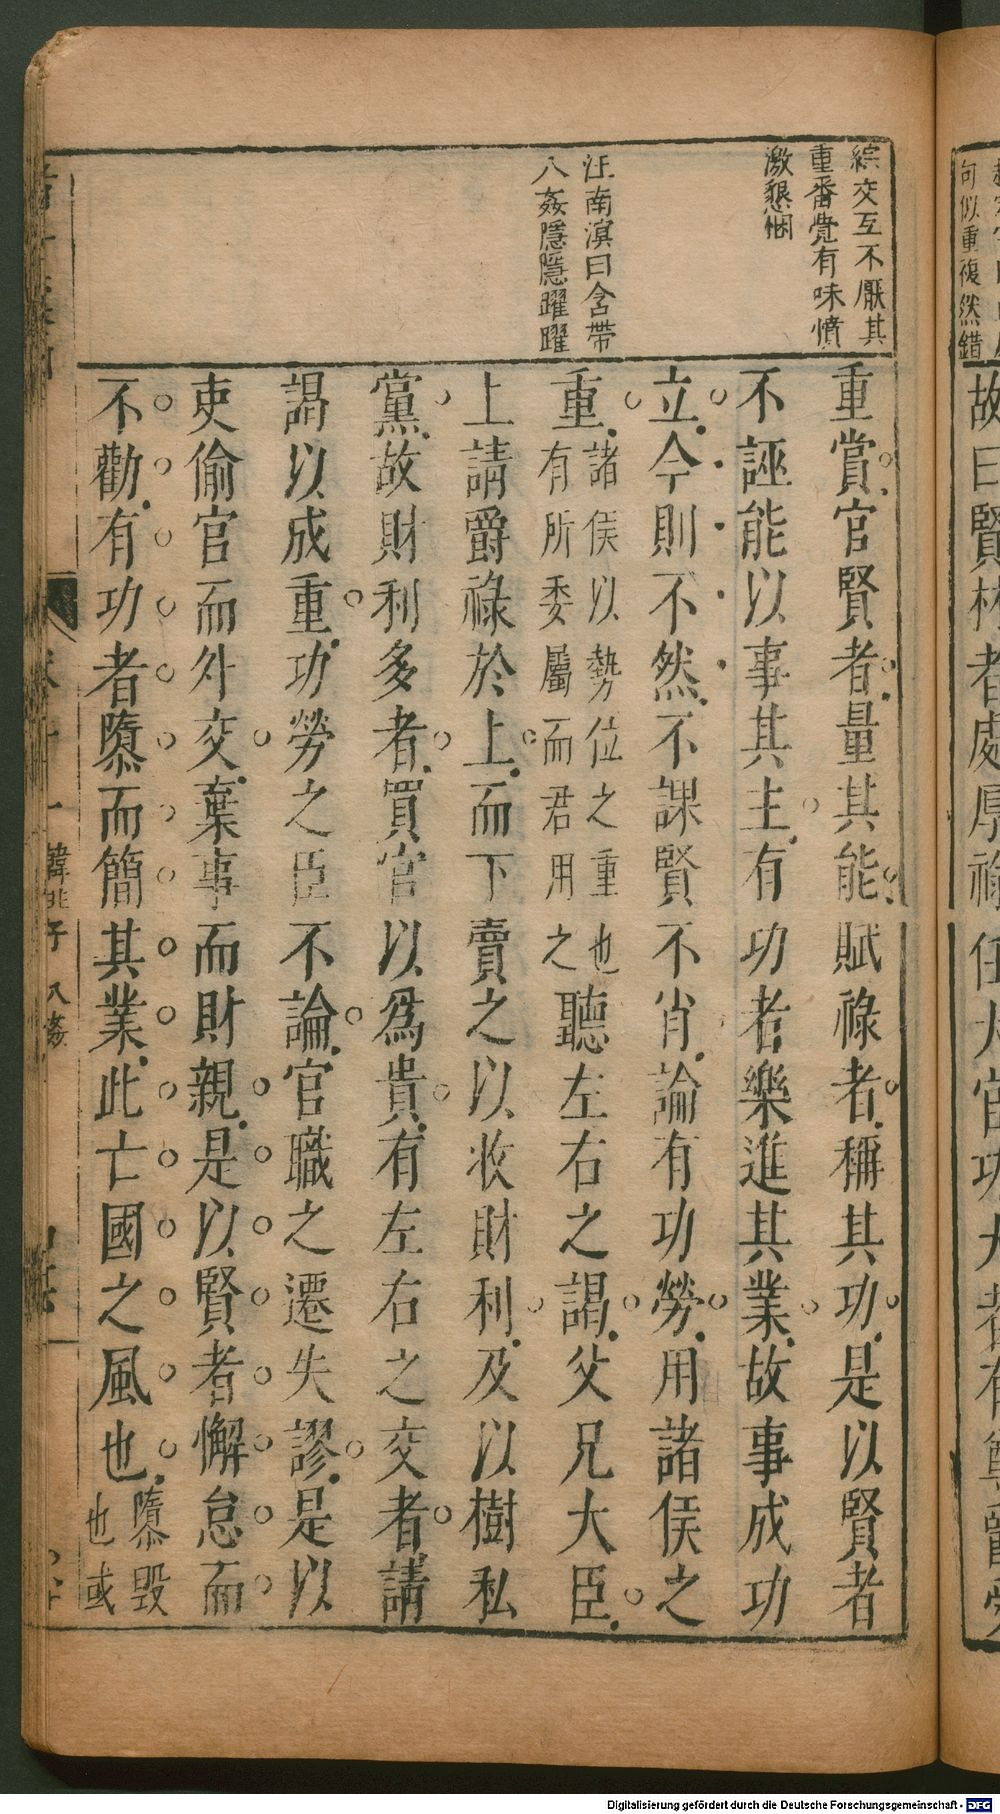 句似重複然錯
故曰賢材者處厚祿任大官功大者有尊爵受
綜交互不厭其
重畨覺有味憤
激懇悃
汪南溟曰含帶
八姦隱隱躍躍
重賞官賢者量其能賦祿者稱其功是以賢者
不誣能以事其主有功者樂進其業故事成功
立今則不然不課賢不肖論有功勞用諸侯之
重諸侯以勢位之重也
有所委屬而君用之聽左右之謁父兄大臣
上請爵祿於上而下賣之以收財利及以樹私
黨故財利多者買官以為貴有左右之交者請
謁以成重功勞之臣不論官職之遷失謬是以
吏偷官而外交棄事而財親是以賢者懈怠而
不勸有功者隳而簡其業此亡國之風也隳毀
也或
韓非子 八姦
Digitalisierung gefördert durch die Deutsche Forschungsgemeinschaft - DFG